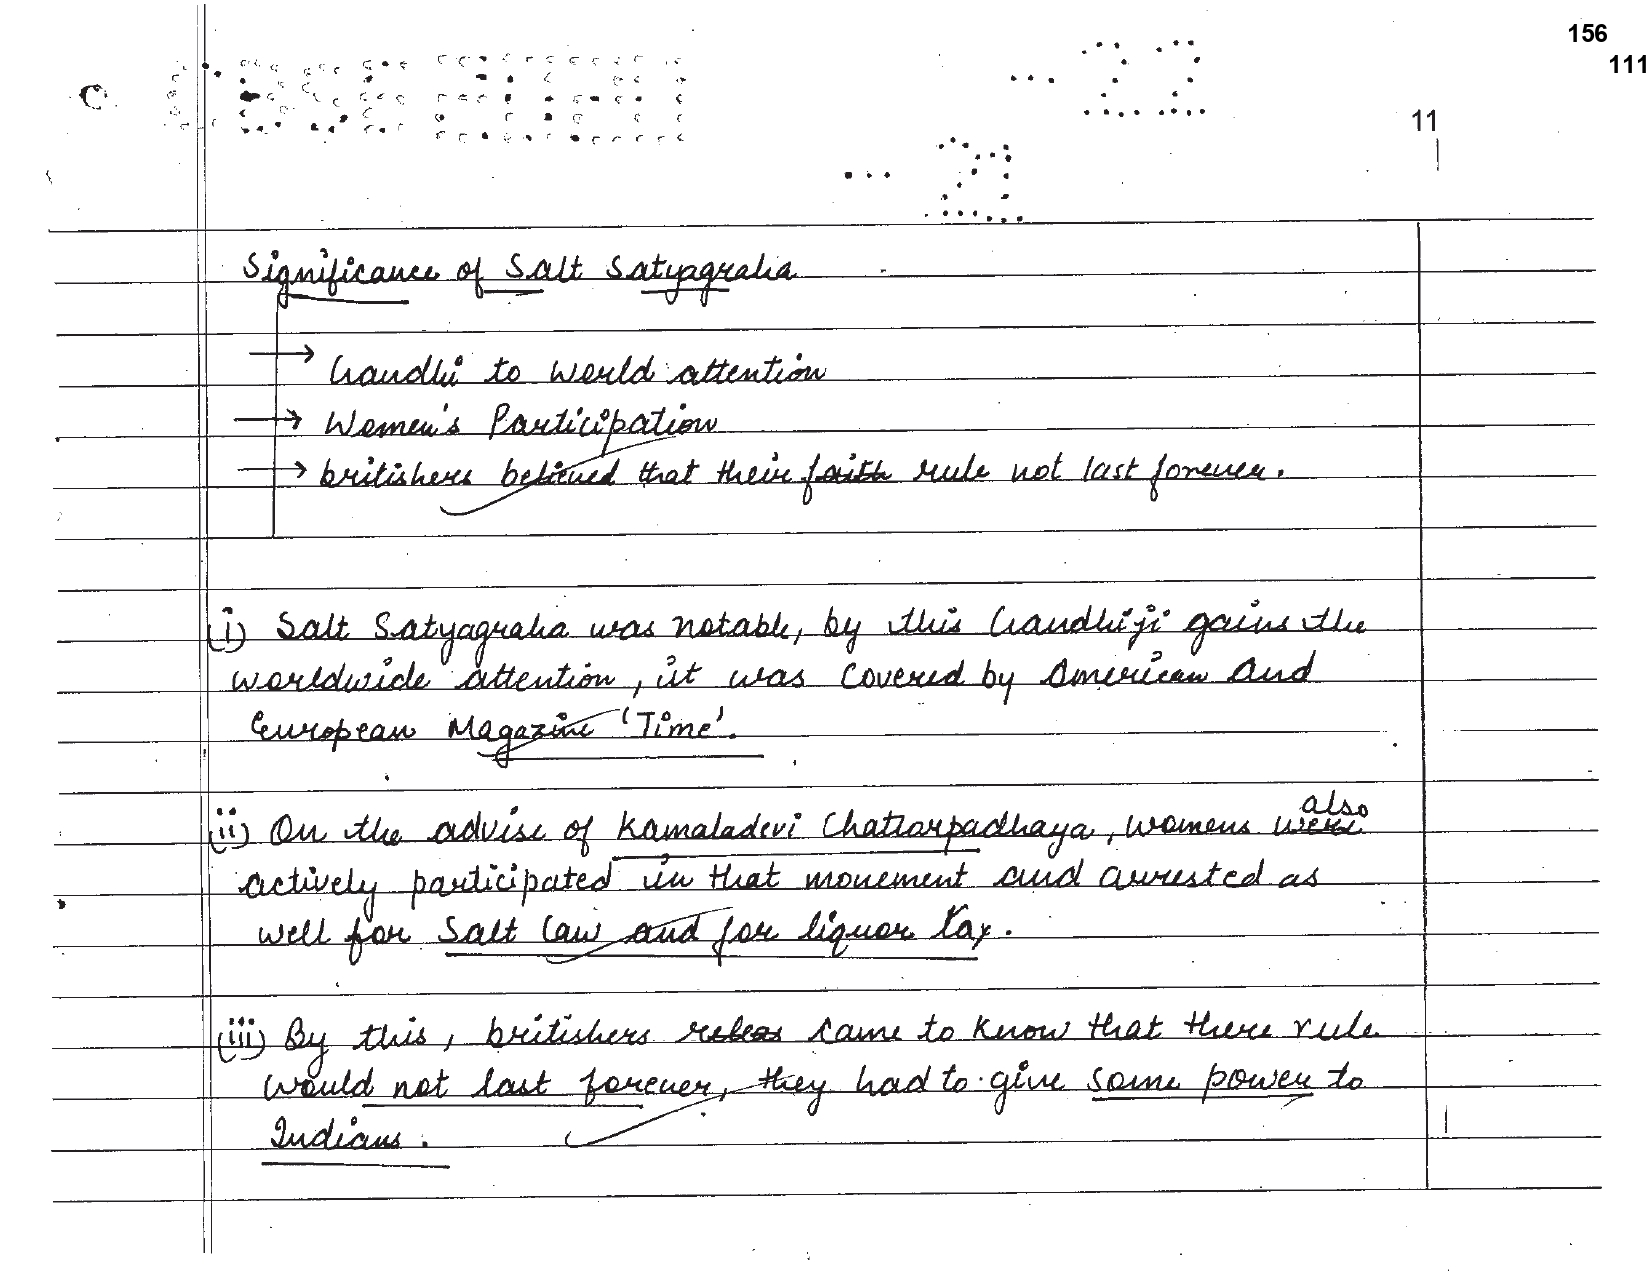 156
111
11
C
22
21
Significance of Salt Satyagraha
→ Gandhi to world attention
→ Women's Participation
→ britishers believed that their faith rule not last forever.
(i) Salt Satyagraha was notable, by this Gandhiji gains the
worldwide attention, it was covered by American and
European Magazine 'Time'.
(ii) On the advise of Kamaladevi Chattarpadhaya, womens were also
actively participated in that movement and arrested as
well for salt law and for liquor tax.
(iii) By this, britishers came to know that there rule
would not last forever, they had to give some power to
Indians.